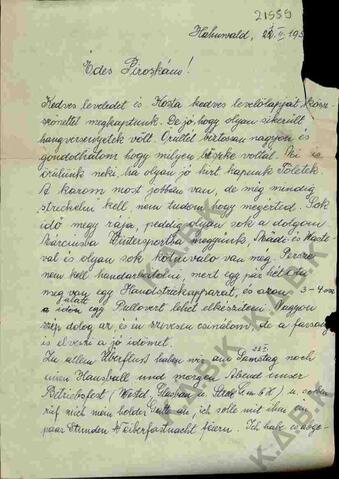 21559
Hahnwald, 22. II. 195
Édes Piroskám!
Kedves leveledet és Kozla kedves levelőlapját kösz-
szönettel megkaptunk. De jó hogy olyan sikerült
hangversenyetek volt. Örültél biztosan nagyon és
gondolhatom hogy milyen büszke voltál. Mi is
örülünk neki ha olyan jó hirt kapunk Tőletek.
A karom most jobban van, de még mindig
strecheln kell nem tudom hogy megérted. Sok
idő megy rája, pedig olyan sok a dolgom.
Márciusba Wintersportba megyünk, Skadi és Haste
val és olyan sok kötnivaló van meg. Persze
nem kell handarbeitolni, mert egy pár hét óta
meg van egy Handstrickapparat, és azon 3-4
alatt egy Pullovert lehet elkészíteni. Nagyon
szép dolog az, és én szívesen csinálom, de a
is elveszi a jó időmet.
Zu allem Überfluss haben wir am Samstag noch
einen Hausball und morgen Abend unser
Betriebsfest (Westd. Glasbau u. GmbH) u.
rief mich mein holder Gatte an, ich solle mit ihm ein
paar Stunden Weiberfastnacht feiern. Ich habe es abge-
K.A.B.K